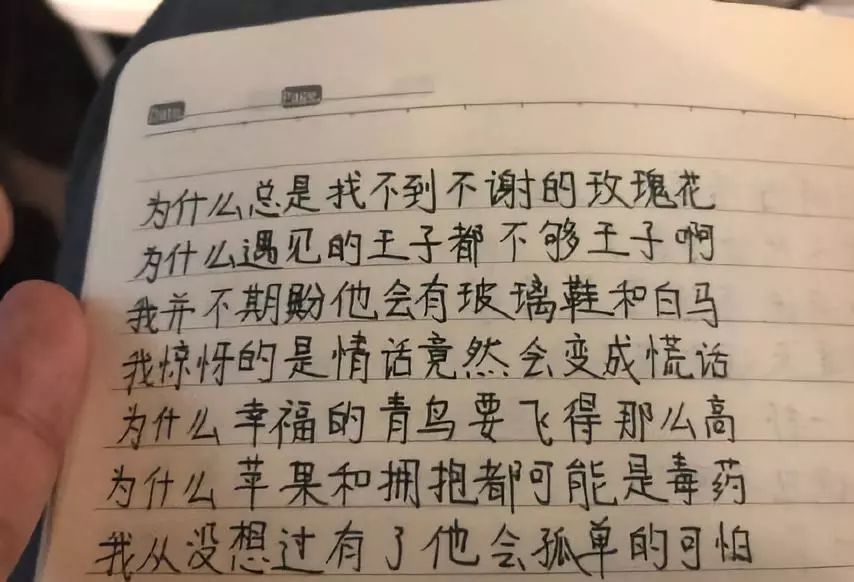 Date.
Page.
为什么总是找不到不谢的玫瑰花
为什么遇见的王子都不够王子啊
我并不期盼他会有玻璃鞋和白马
我惊讶的是情话竟然会变成慌话
为什么幸福的青鸟要飞得那么高
为什么苹果和拥抱都可能是毒药
我从没想过有了他会孤单的可怕